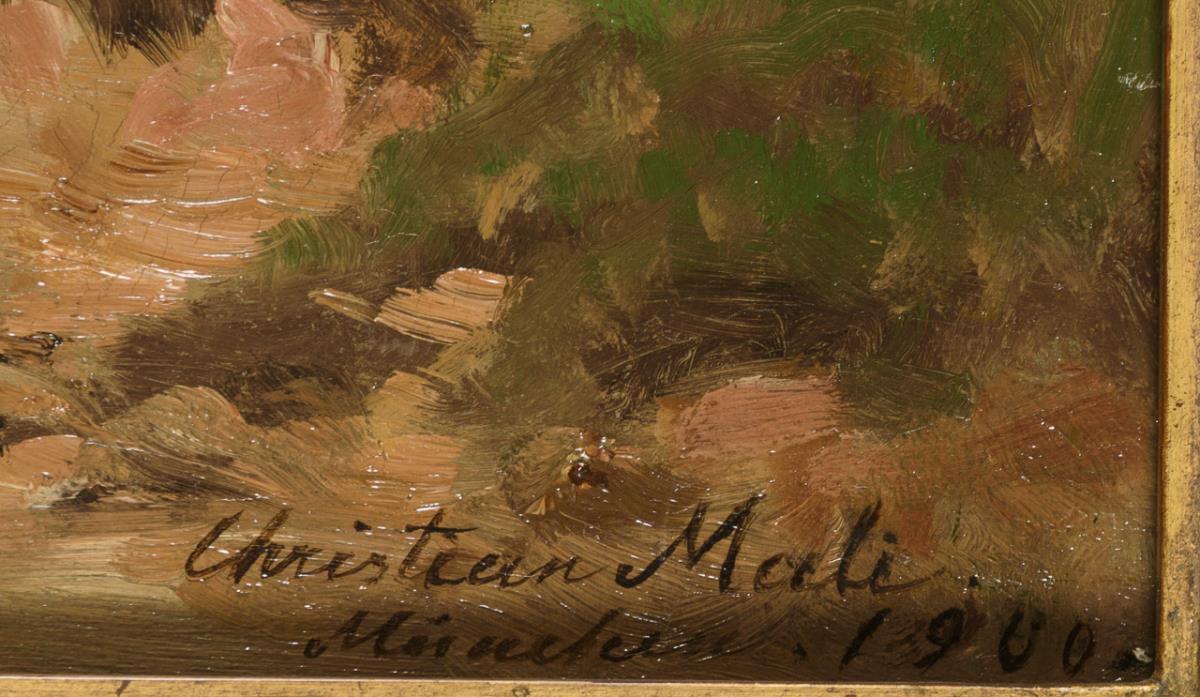 Christian Mali.
München. 1900